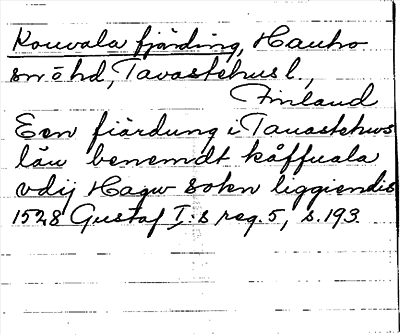 Kouvala fjärding, Hauho
sn o hd, Tavastehus l.,
Finland
Een fiärdung i Tauastehws
län benemdt kåffuala
vdij Hagw sokn liggiendis
1528 Gustaf I:s reg. 5, s. 193.